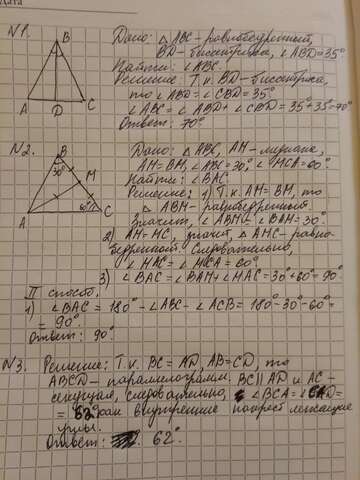 Дата
№1.
B
A D C
Дано: △ ABC - равнобедренный,
BD - биссектриса, ∠ABD = 35°
Найти: ∠ABC.
Решение: Т.к. BD - биссектриса,
то ∠ABD = ∠CBD = 35°
∠ABC = ∠ABD + ∠CBD = 35° + 35° = 70°
Ответ: 70°
№2.
B
30°
M
60°
A C
Дано: △ABC, AM - медиана,
AM = BM, ∠ABC = 30°, ∠MCA = 60°
Найти: ∠BAC
Решение: 1) Т.к. AM = BM, то
△ ABM - равнобедренный.
Значит, ∠ABM = ∠BAM = 30°
2) AM = MC, значит, △AMC - равно-
бедренный. Следовательно,
∠MAC = ∠MCA = 60°
3) ∠BAC = ∠BAM + ∠MAC = 30° + 60° = 90°
II способ.
1) ∠BAC = 180° - ∠ABC - ∠ACB = 180° - 30° - 60° =
= 90°
Ответ: 90°
№3. Решение: Т.к. BC = AD, AB = CD, то
ABCD - параллелограмм. BC || AD и AC -
секущая, следовательно, ∠BCA = ∠CAD =
= 62° как внутренние накрест лежащие
углы.
Ответ: 62°.